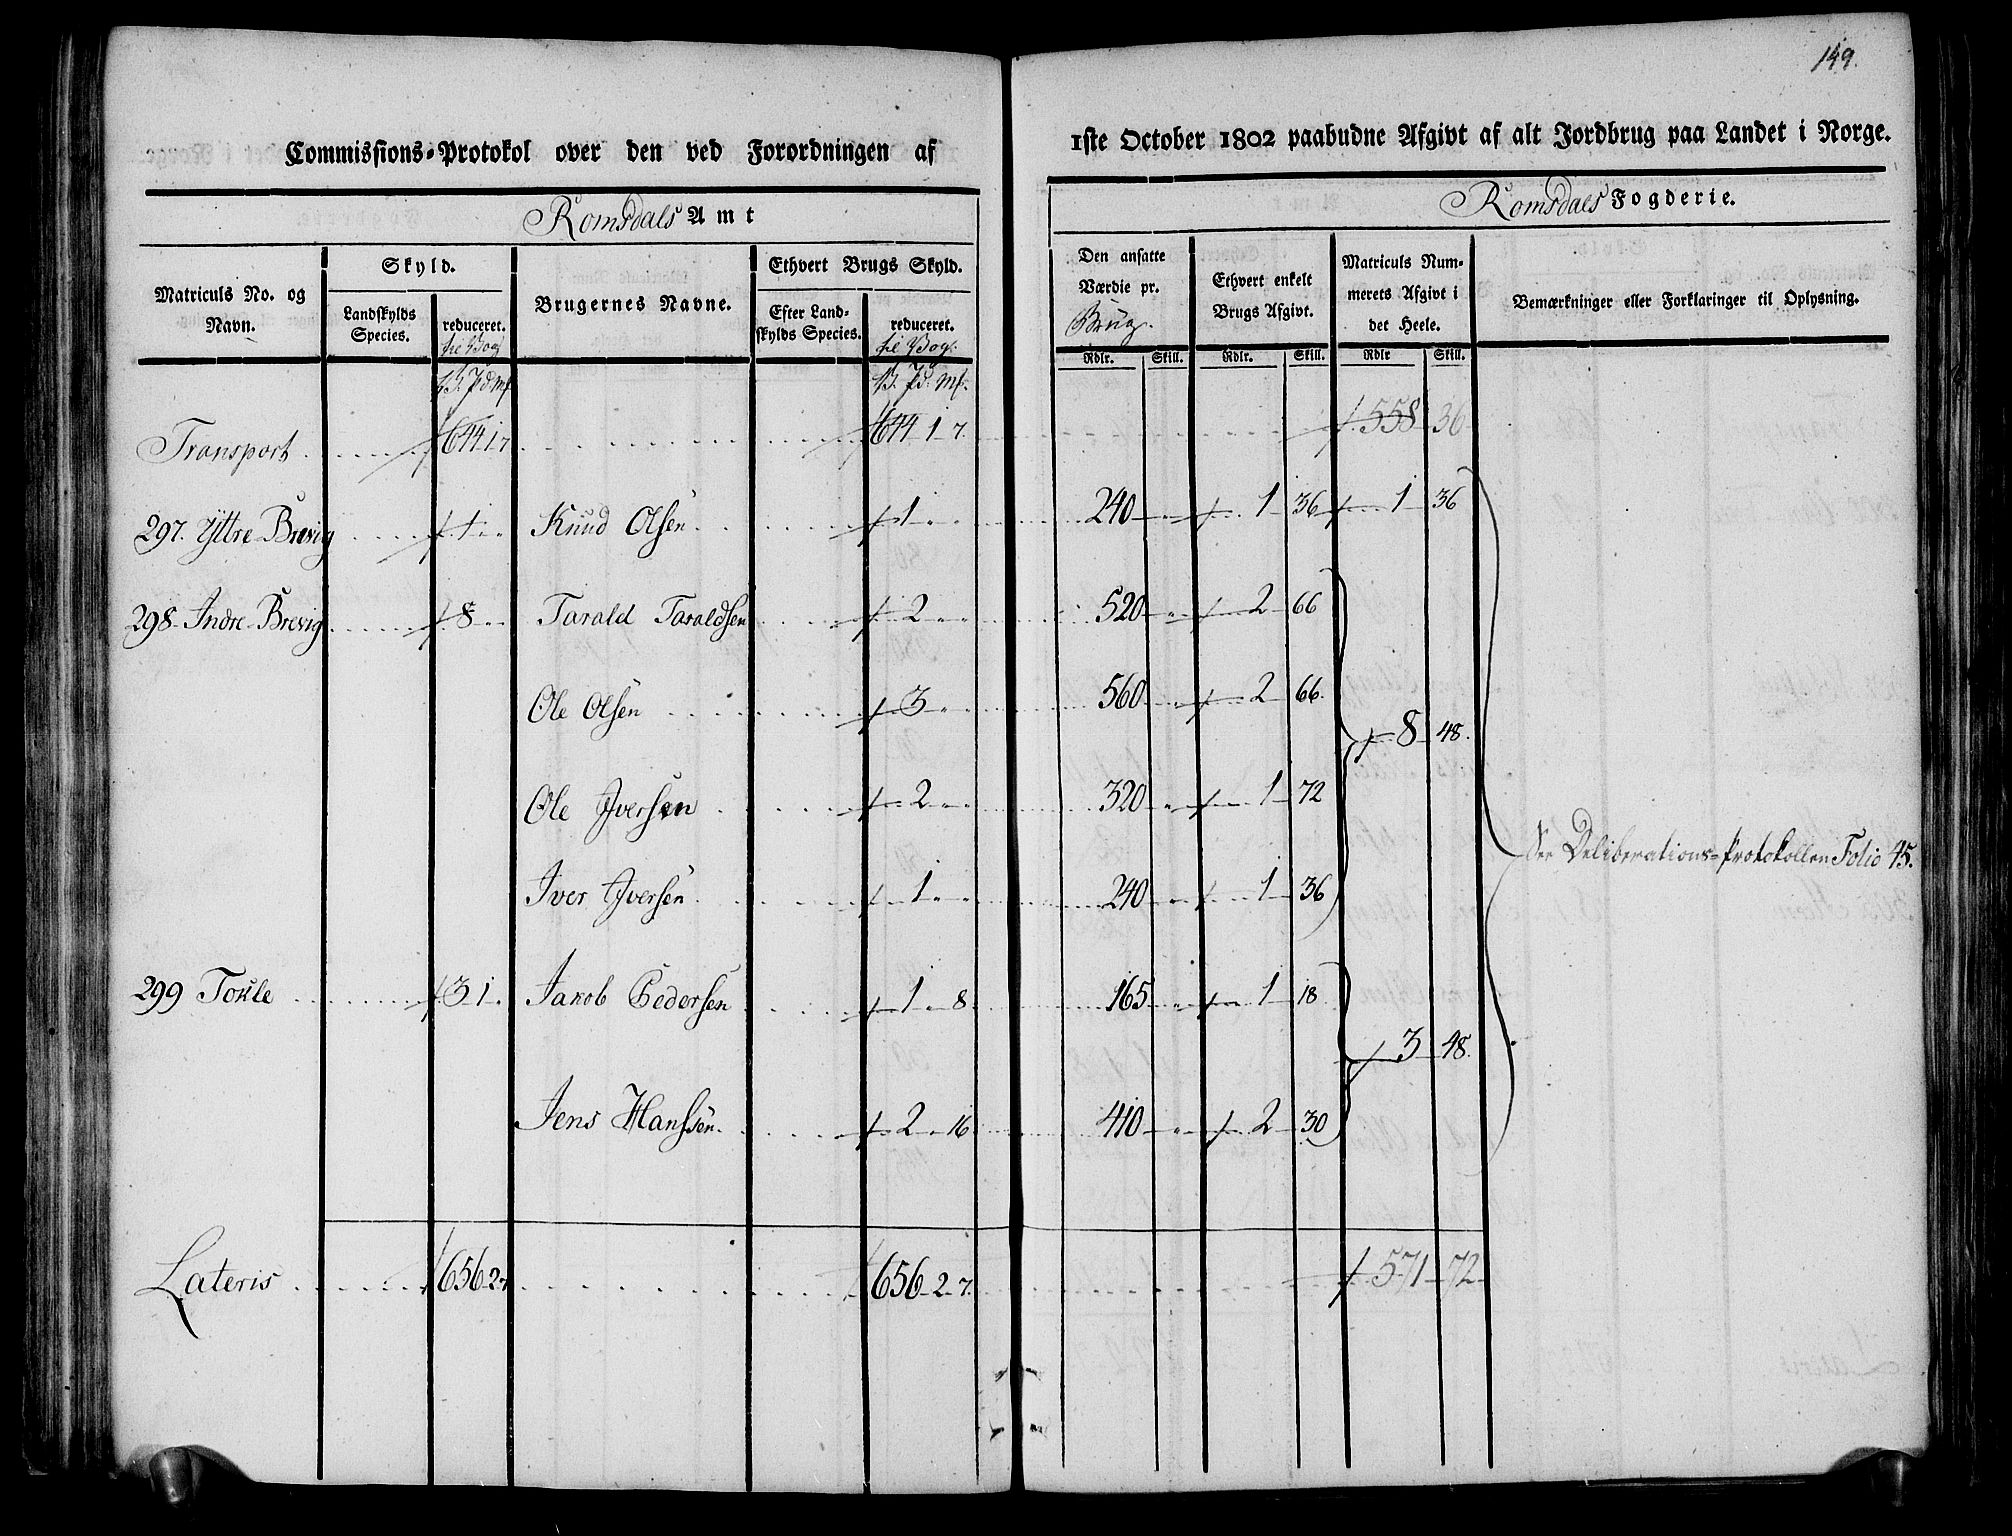 149.
Commissions-Protokol over den ved Forordningen af 1ste October 1802 paabudne Afgivt af alt Jordbrug paa Landet i Norge.
Romsdals Amt Romsdals Fogderie.
Matriculs No. og Navn. Skyld. Landskylds Species. reduceret. til Vog Brugernes Navne. Ethvert Brugs Skyld. Efter Landskylds Species. reduceret. til Vog. Den ansatte Værdie pr. Brug. Ethvert enkelt Brugs Afgivt. Matriculs Nummerets Afgivt i det Heele. Bemærkninger eller Forklaringer til Oplysning.
Rdlr. Skill. Rdlr. Skill. Rdlr Skill.
V. Pd Mk V. Pd. Mk.
Transport 644 1 7 644 1 7. 558 36
297. Yttre Brevig 1 " " Knud Olsen 1 " " 240 " 1 36 1 36
298 Indre Brevig 8 " " Tarald Taraldsen 2 " " 520 " 2 66
Ole Olsen 3 " " 560 " 2 66.
8 48.
Ole Iversen 2 " " 320 " 1 72
See Deliberations-Protokollen Folio 45.
Iver Iversen 1 " " 240 " 1 36
299 Tokle 3 1 " Jakob Pedersen 1 " 8 165 " 1 18
3 48.
Jens Hanssen 2 " 16 410 " 2 30
Lateris 656 2 7 656 2 7. 571 72